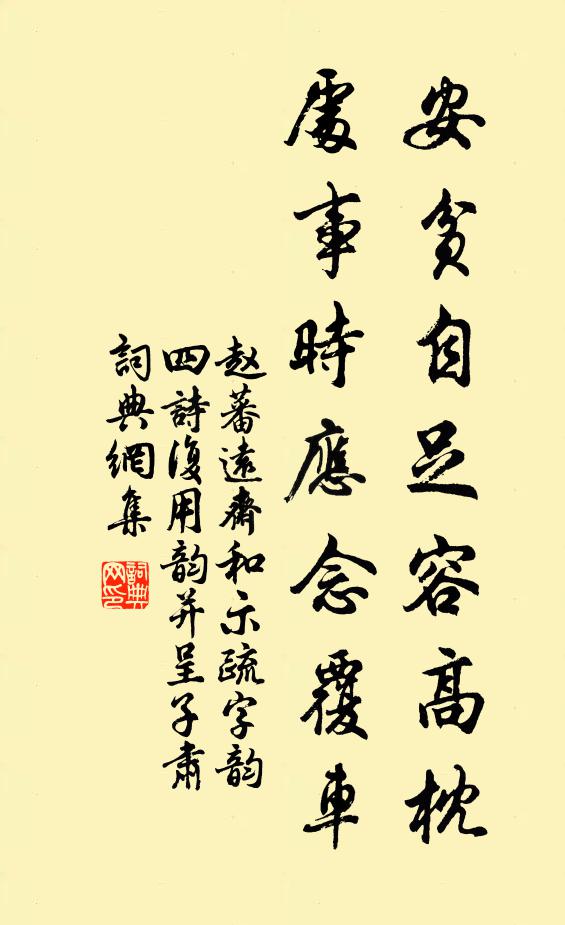 安貧自足容高枕
處事時應念覆車
赵蕃遠齋和示疏字韵
四詩復用韵并呈子肅
詞典網集
詞典网印